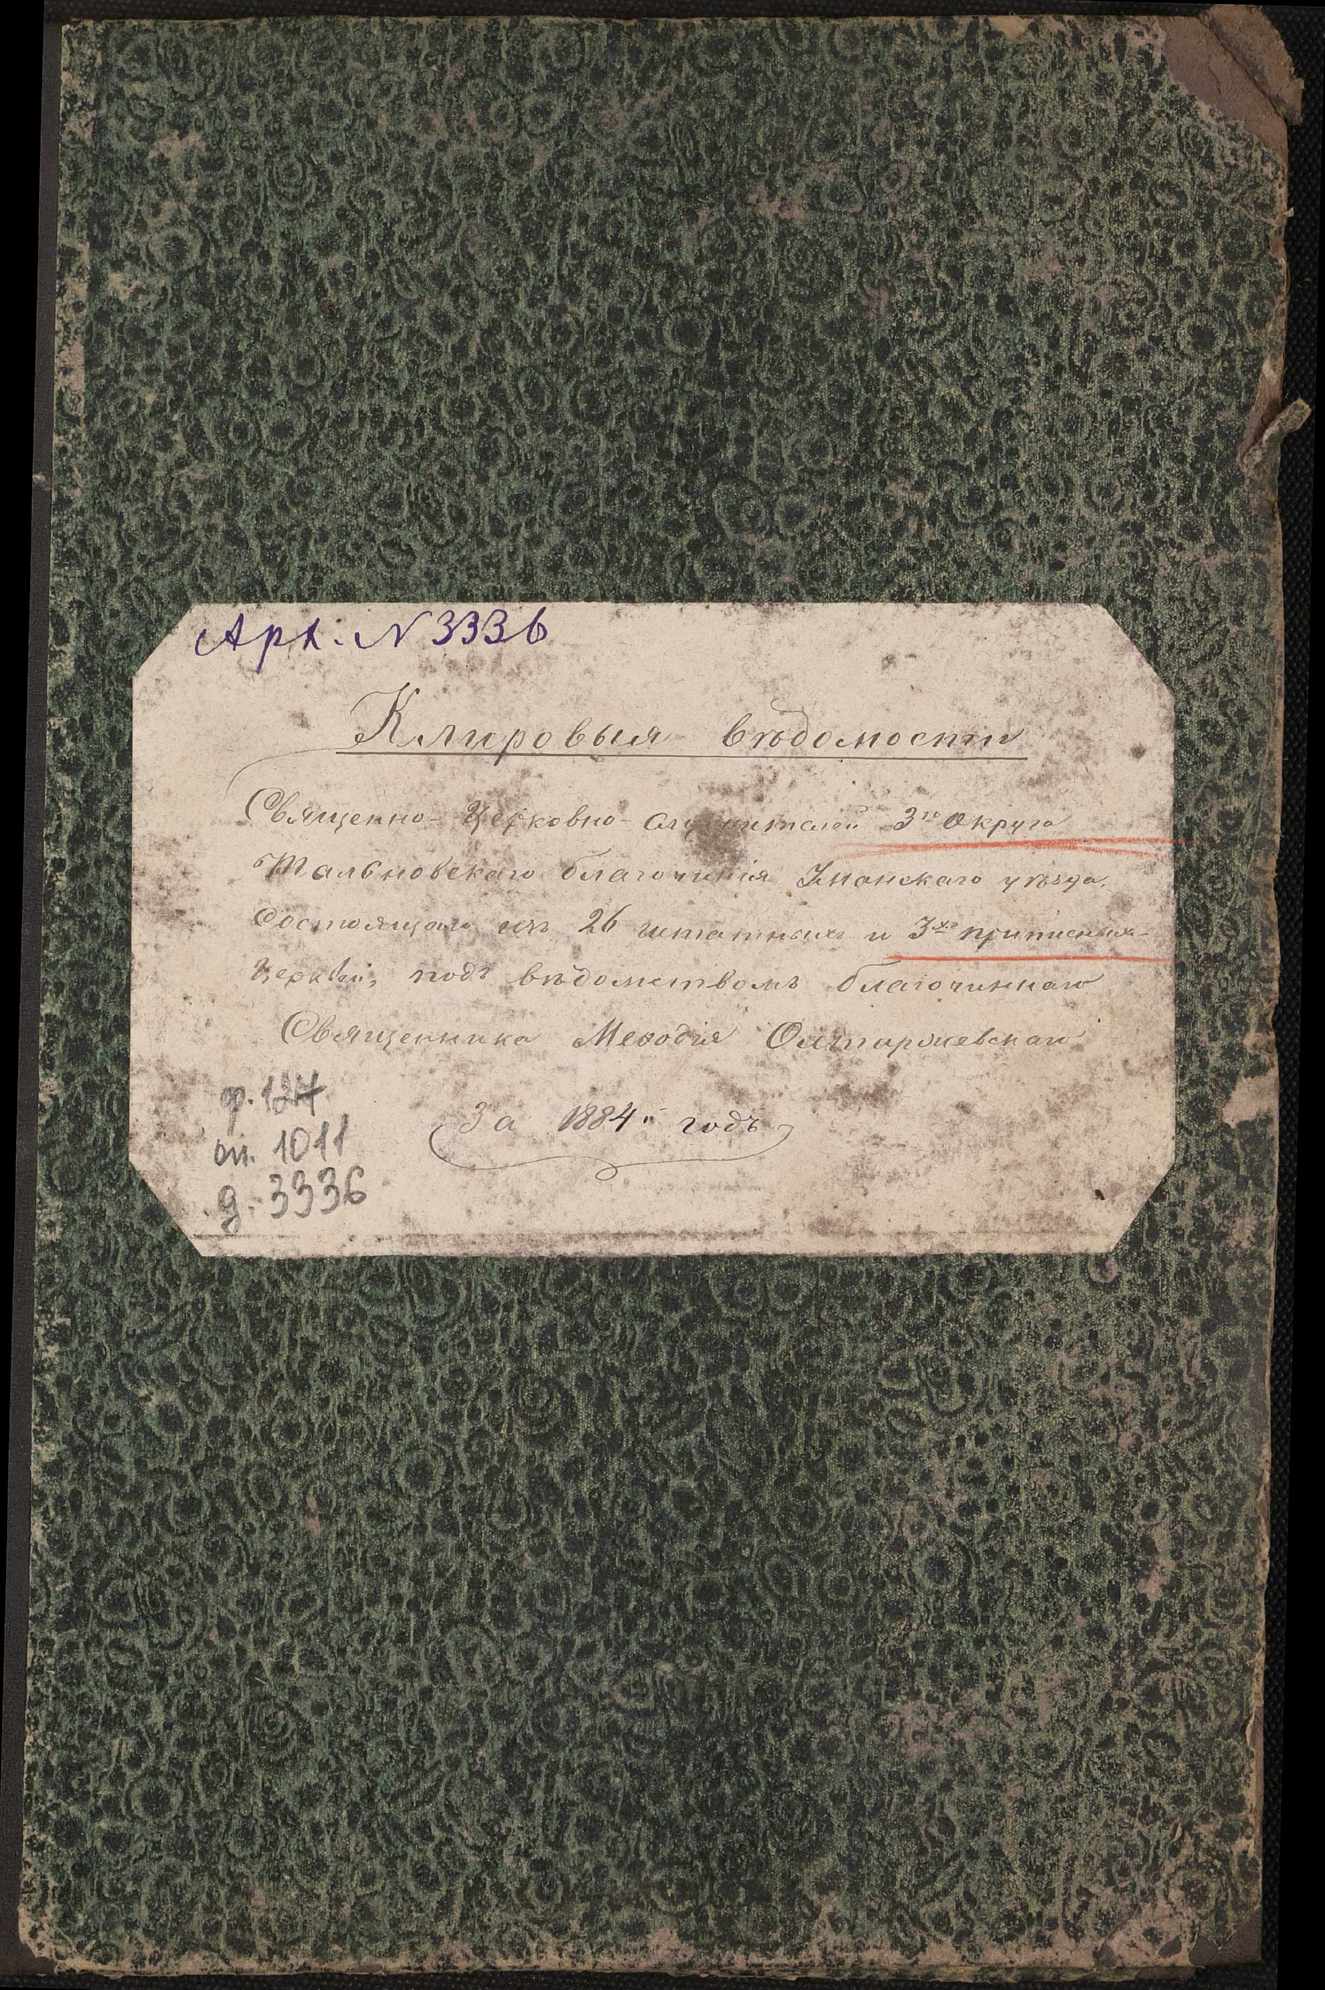 Арх. N 3336
Клировыя вѣдомости
Священно-Церковно-служителей 3го Округа
Тальновскаго благочинія Уманскаго уѣзда,
Состоящаго изъ 26 штатныхъ и 3хъ приписныхъ
Церквей, подъ вѣдомствомъ благочиннаго
Священника Меѳодія Олтаржевскаго
За 1884й годъ
ф. 127
оп. 1011
д. 3336